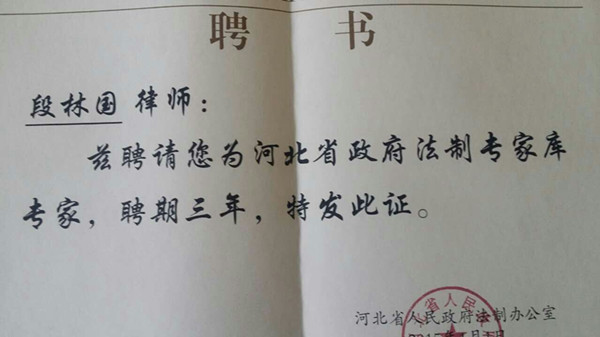 聘 书
段林国 律师：
兹聘请您为河北省政府法制专家库
专家，聘期三年，特发此证。
省人民
河北省人民政府法制办公室